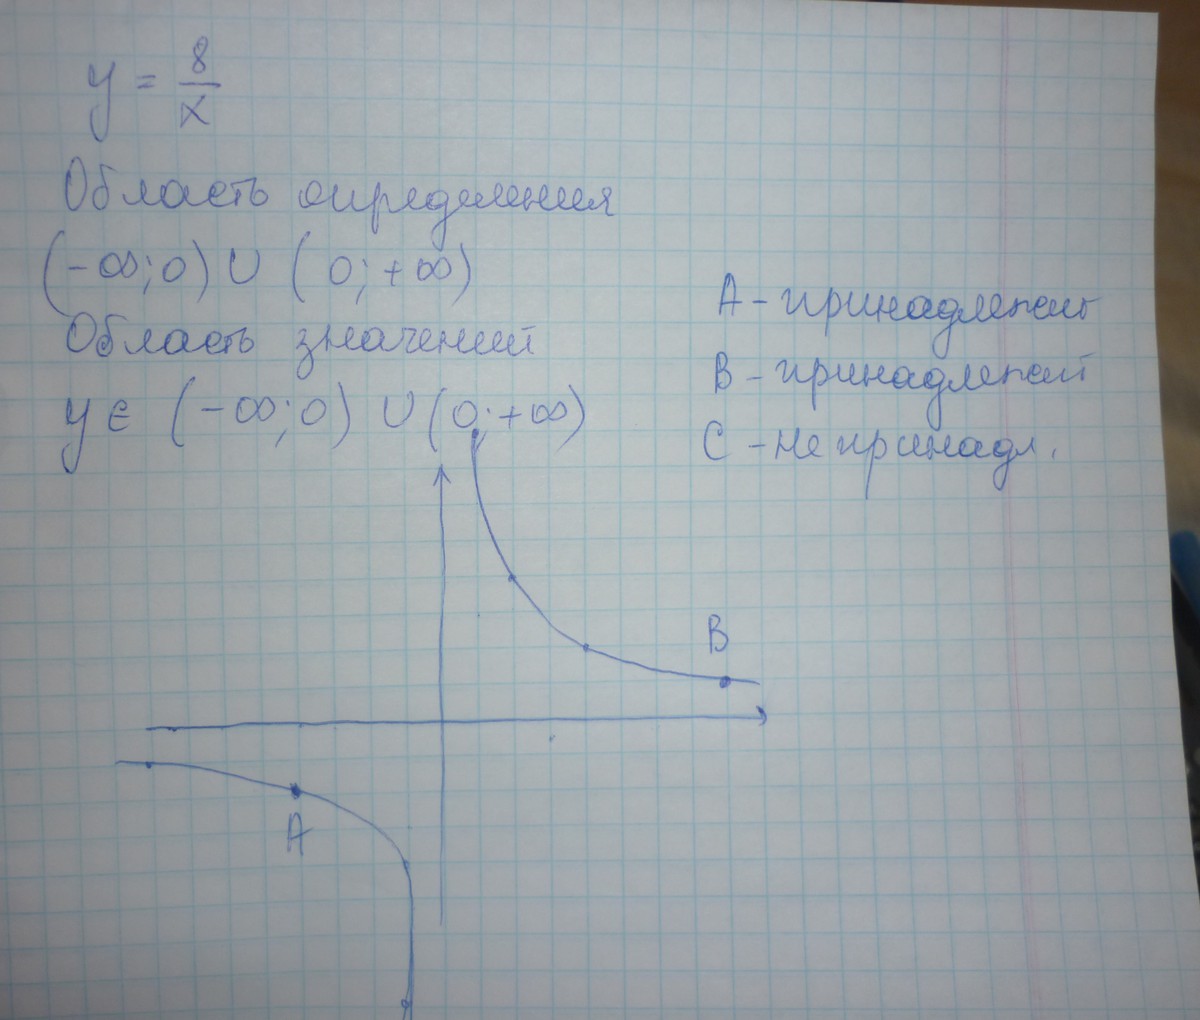 y = 8/x
Область определения
(-∞; 0) ∪ (0; +∞)
Область значений
y ∈ (-∞; 0) ∪ (0; +∞)
A - принадлежит
B - принадлежит
C - не принадл.
B
A